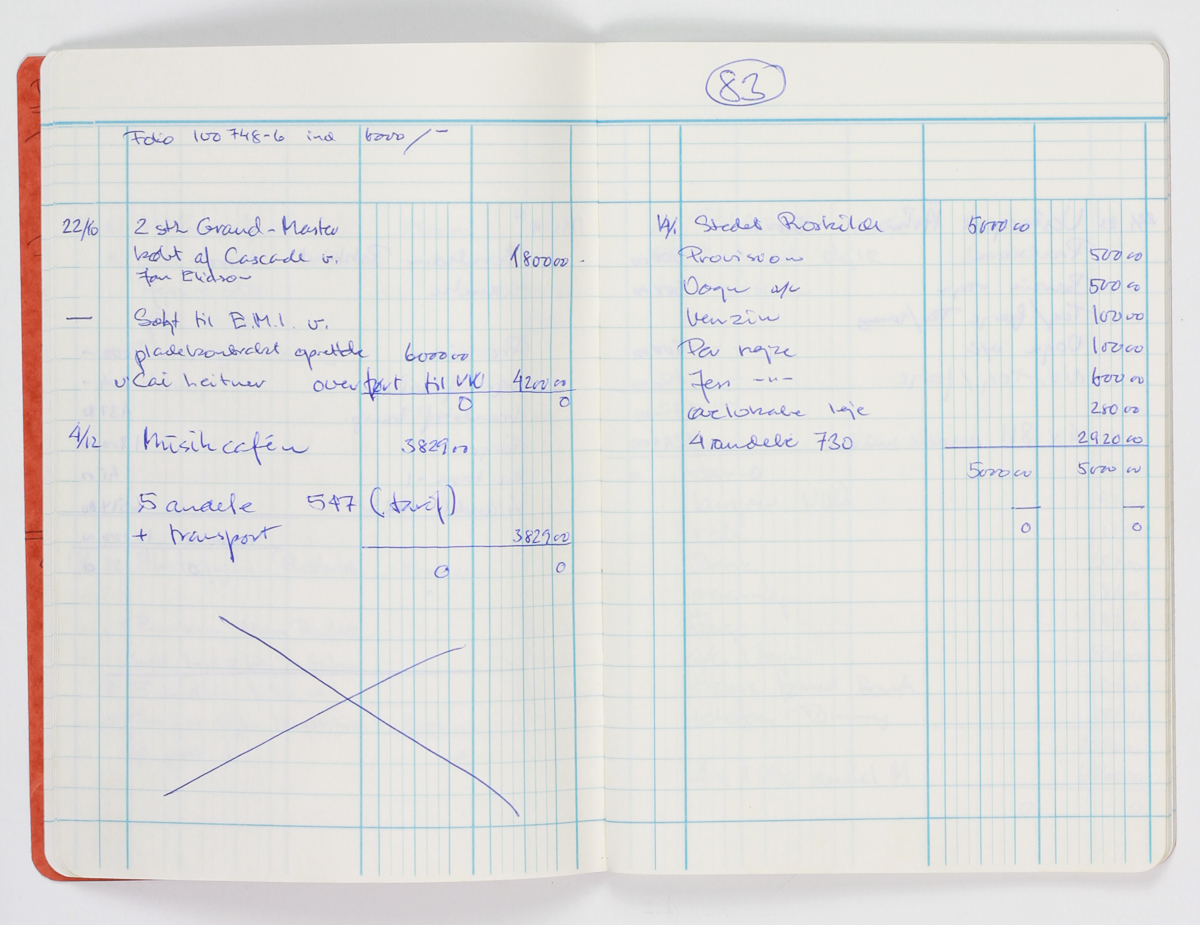 Folio 100 748-6 ind 6000/-
22/10 2 stk Grand-Master
købt af Cascade v. 1800 00.
Jan Elidson
— Solgt til E.M.I. v.
pladekontrakt oprettede 6000 00
v Cai Leitner overført til VK 4200 00
0 0
4/12 Musikcaféen 3829 00
5 andele 547 (tarif)
+ transport 3829 00
0 0
83
14/1. Stedet Roskilde 5000 00
Provision 500 00
Vogn 500 00
Benzin 100 00
Per 100 00
Jess -"- 600 00
øvelokale leje 280 00
4 andele 730 2920 00
5000 00 5000 00
— —
0 0